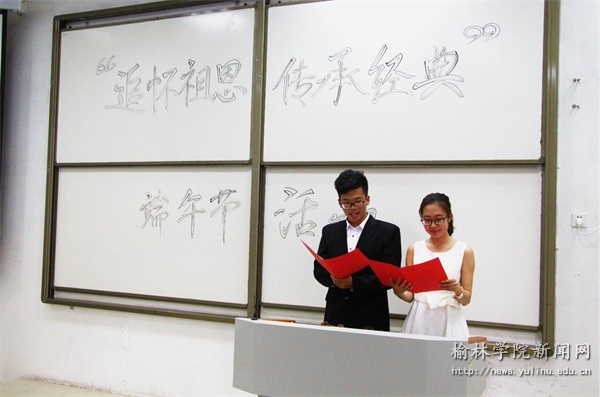 “追怀祖思 传承经典”
端午节 活
榆林学院新闻网
http://news.yulinu.edu.cn